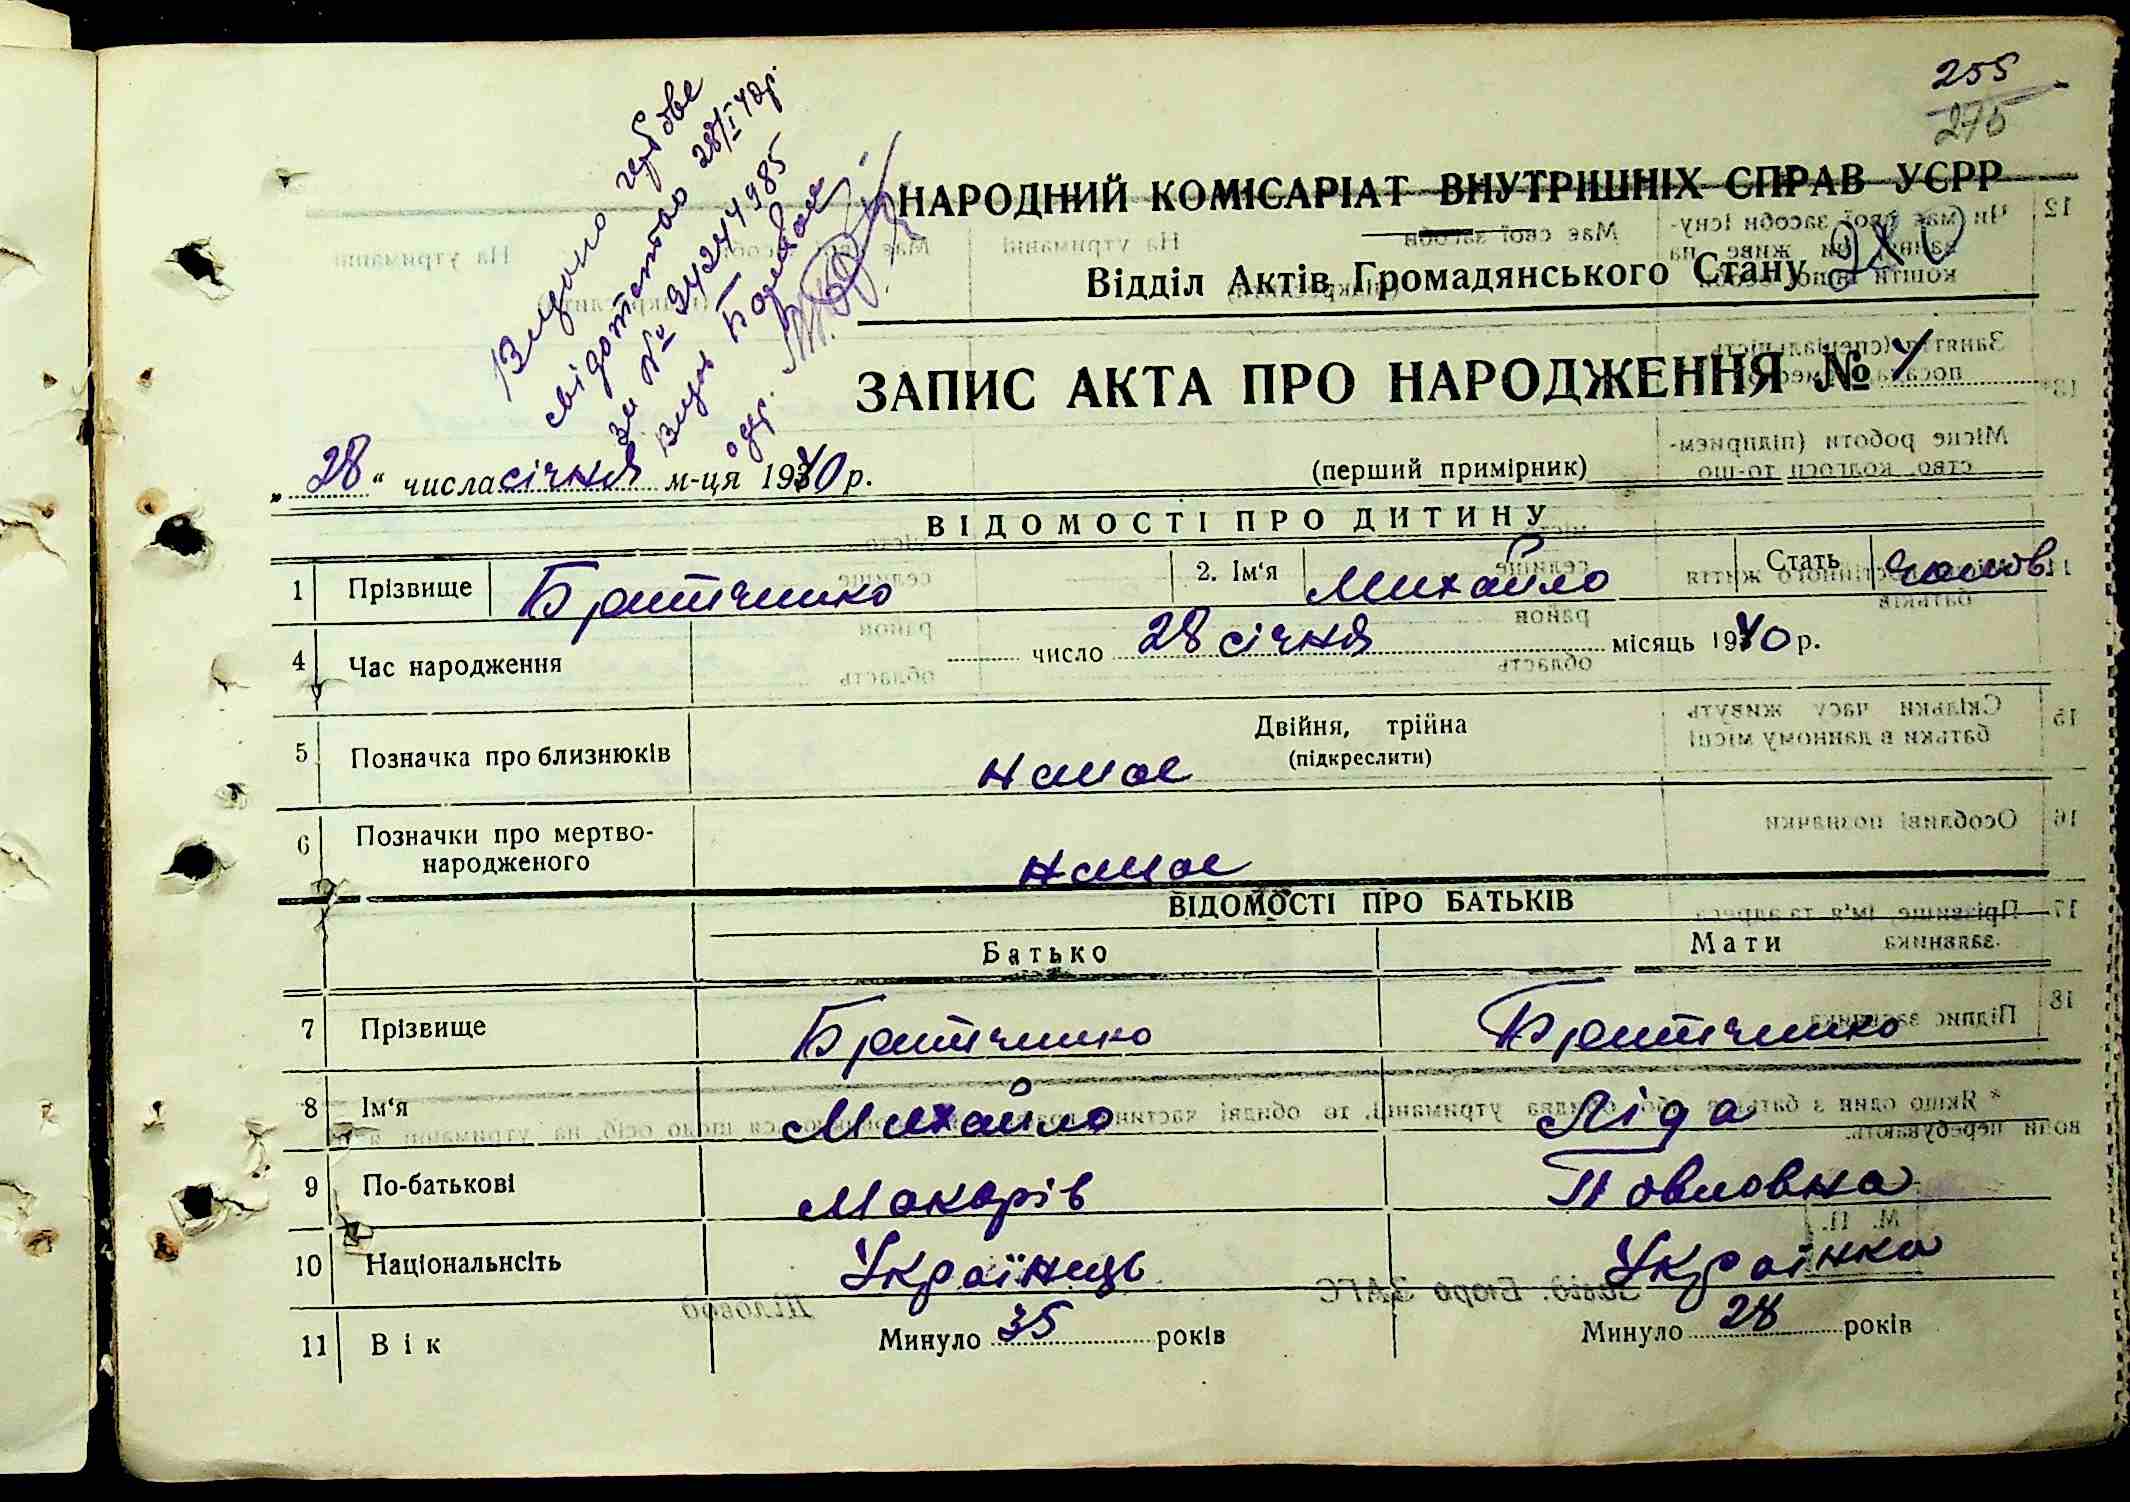 255
275
Видано гербове
свідотство 28/I 40р.
за № 34244985
Видав
одер.
НАРОДНИЙ КОМІСАРІАТ ВНУТРІШНІХ СПРАВ УСРР
Відділ Актів Громадянського Стану
ЗАПИС АКТА ПРО НАРОДЖЕННЯ № 4
„ 28 “ числа січня м-ця 1940 р.
(перший примірник)
ВІДОМОСТІ ПРО ДИТИНУ
1 Прізвище Братчинко 2. Ім‘я Михайло Стать чолов.
4 Час народження число 28 січня місяць 1940 р.
5 Позначка про близнюків Двійня, трійна
(підкреслити)
немає
6 Позначки про мертво-
народженого немає
ВІДОМОСТІ ПРО БАТЬКІВ
Батько Мати
7 Прізвище Братчинко Братчинко
8 Ім‘я Михайло Ліда
9 По-батькові Макарів Повловна
10 Національнсіть Українець Українка
11 Вік Минуло 35 років Минуло 28 років